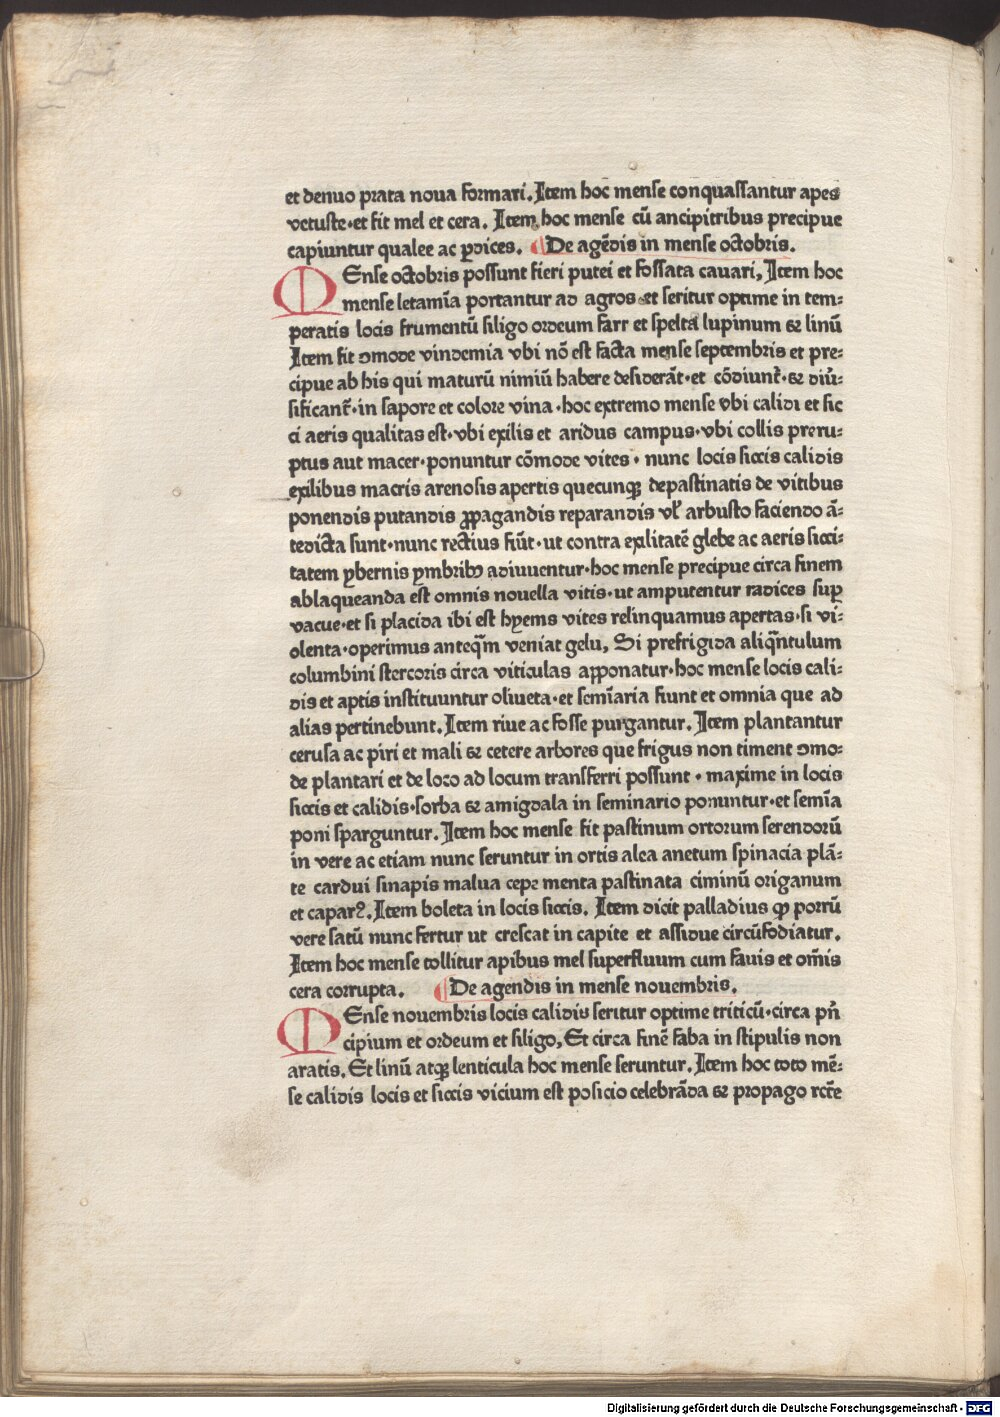 et denuo prata noua formari. Item hoc mense conquassantur apes
vetuste·et fit mel et cera. Item hoc mense cū ancipitribus precipue
capiuntur qualee ac ꝑdices. ¶ De agēdis in mense octobris.
MEnse octobris possunt fieri putei et fossata cauari, Item hoc
mense letamīa portantur ad agros et seritur optime in tem⸗
peratis locis frumentū siligo ordeum farr et spelta lupinum & linū
Item fit ꝯmode vindemia vbi nō est facta mense septembris et pre⸗
cipue ab his qui maturū nimiū habere desiderāt·et cōdiunt᷑·& diu̾⸗
sificant᷑·in sapore et colore vina·hoc extremo mense vbi calidi et sic
ci aeris qualitas est·vbi exilis et aridus campus·vbi collis preru⸗
ptus aut macer·ponuntur cōmode vites· nunc locis siccis calidis
exilibus macris arenosis apertis quecunqꝫ depastinatis de vitibus
ponendis putandis ꝓpagandis reparandis vl̕ arbusto faciendo ā⸗
tedicta sunt·nunc rectius fiūt·ut contra exilitatē glebe ac aeris sicci⸗
tatem ybernis ymbribꝰ adiuuentur·hoc mense precipue circa finem
ablaqueanda est omnis nouella vitis·ut amputentur radices suꝑ
vacue·et si placida ibi est hyems vites relinquamus apertas·si vi⸗
olenta·operimus anteq̄m veniat gelu, Si prefrigida aliq̄ntulum
columbini stercoris circa viticulas apponatur·hoc mense locis cali⸗
dis et aptis instituuntur oliueta·et semīaria fiunt et omnia que ad
alias pertinebunt. Item riue ac fosse purgantur. Item plantantur
cerusa ac piri et mali & cetere arbores que frigus non timent ꝯmo⸗
de plantari et de loco ad locum transferri possunt· maxime in locis
siccis et calidis·sorba & amigdala in seminario ponuntur·et semīa
poni sparguntur. Item hoc mense fit pastinum ortorum serendorū
in vere ac etiam nunc seruntur in ortis alea anetum spinacia plā⸗
te cardui sinapis malua cepe menta pastinata ciminū origanum
et capar?. Item boleta in locis siccis. Item dicit palladius ꝙ porrū
vere satū nunc fertur ut crescat in capite et assidue circūfodiatur.
Item hoc mense tollitur apibus mel superfluum cum fauis et om̄is
cera corrupta. ¶ De agendis in mense nouembris.
MEnse nouembris locis calidis seritur optime triticū·circa pn̄
cipium et ordeum et siligo, Et circa finē faba in stipulis non
aratis. Et linū atqꝫ lenticula hoc mense seruntur. Item hoc toto mē⸗
se calidis locis et siccis vicium est posicio celebrāda & propago rcte
Digitalisierung gefördert durch die Deutsche Forschungsgemeinschaft - DFG